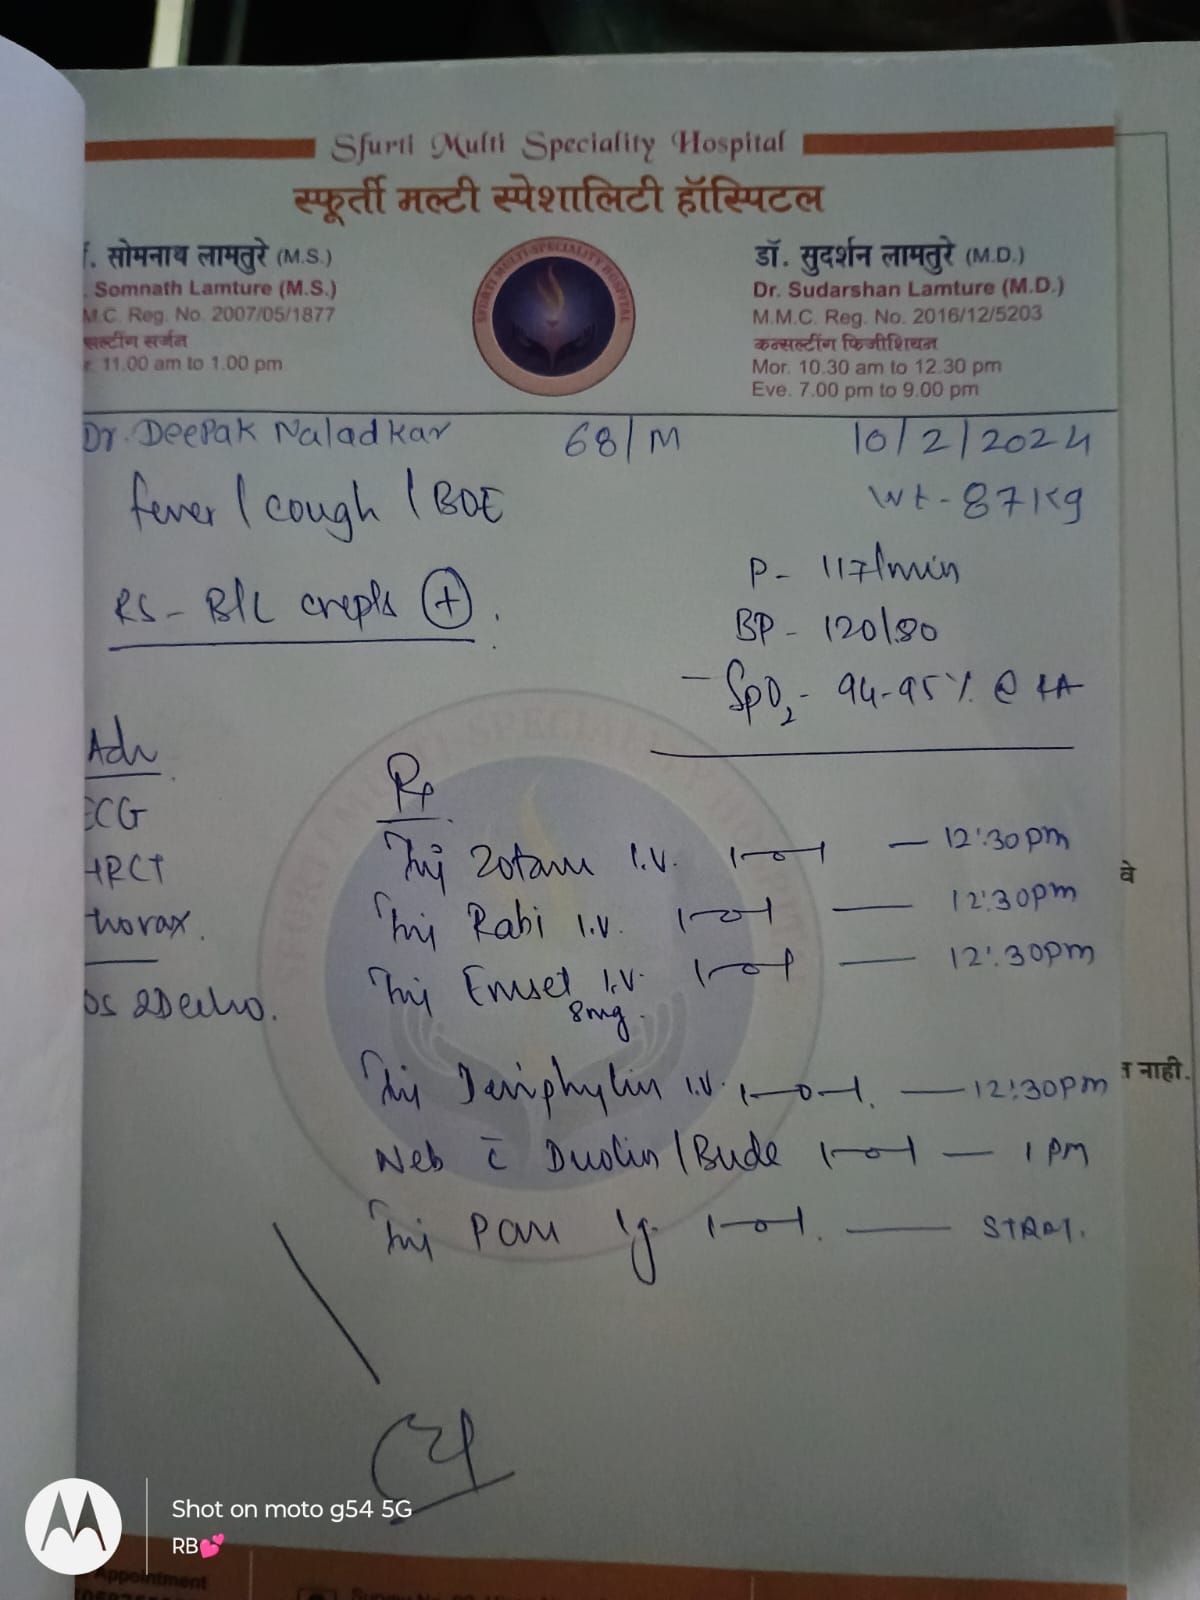 Sfurti Multi Speciality Hospital
स्फूर्ती मल्टी स्पेशालिटी हॉस्पिटल
. सोमनाथ लामतुरे (M.S.)
. Somnath Lamture (M.S.)
M.C. Reg. No. 2007/05/1877
सल्टींग सर्जन
r. 11.00 am to 1.00 pm
SFURTI MULTI SPECIALITY HOSPITAL
डॉ. सुदर्शन लामतुरे (M.D.)
Dr. Sudarshan Lamture (M.D.)
M.M.C. Reg. No. 2016/12/5203
कन्सल्टींग फिजीशियन
Mor. 10.30 am to 12.30 pm
Eve. 7.00 pm to 9.00 pm
Dr. Deepak Naladkar 68/M 10/2/2024
fever / cough / BOE
Wt - 87kg
RS - B/L crepts +.
P - 117/min
BP - 120/80
- SpO2 - 94-95% @ RA
Adv
ECG
HRCT
thorax.
Rx
Inj Zotam I.V. 1-0-1 - 12:30pm
Inj Rabi I.V. 1-0-1 - 12:30pm
Inj Emset I.V. 1-0-1 - 12:30pm
8mg.
Inj Deriphylin I.V. 1-0-1. - 12:30pm
Neb c̄ Duolin / Bude 1-0-1 - 1 PM
Inj Pan 1g 1-0-1. - STAT.
वे
त नाही.
Shot on moto g54 5G
RB💕
Appointment